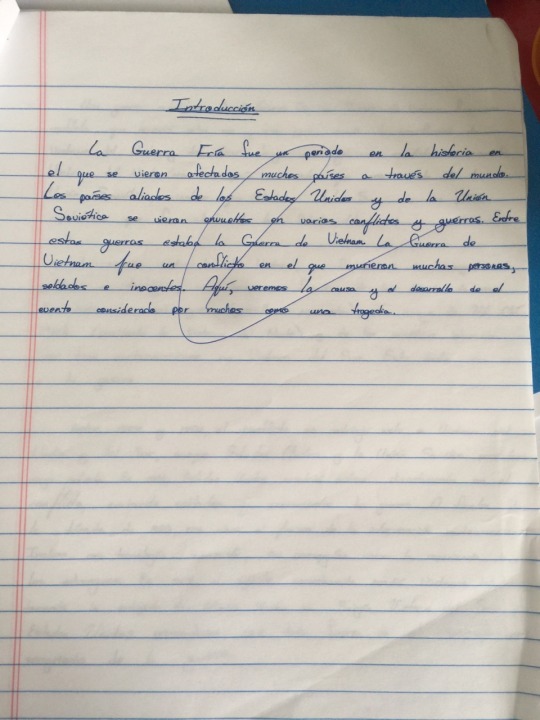 Introducción
La Guerra Fría fue un periodo en la historia en
el que se vieron afectados muchos países a través del mundo.
Los países aliados de los Estados Unidos y de la Unión
Soviética se vieran envueltos en varios conflictos y guerras. Entre
estas guerras estaba la Guerra de Vietnam. La Guerra de
Vietnam fue un conflicto en el que murieron muchas personas,
soldados e inocentes. Aquí, veremos la causa y el desarrollo de el
evento considerado por muchos como una tragedia.